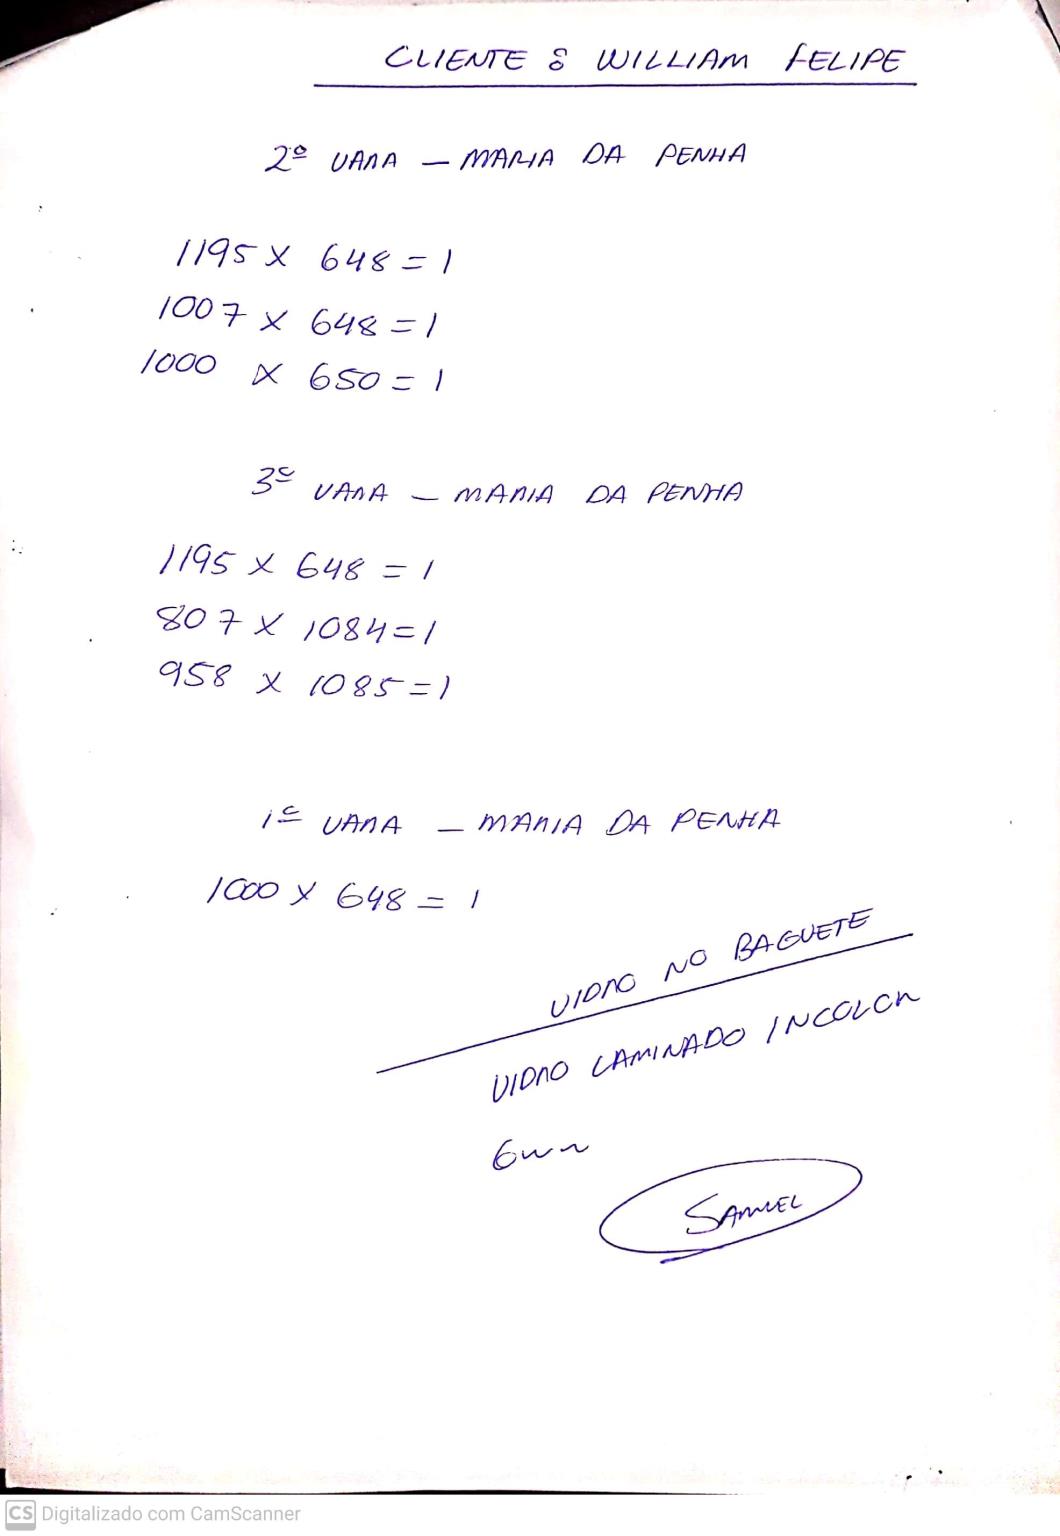 CLIENTE : WILLIAM FELIPE
2º VARA - MARIA DA PENHA
1195 X 648 = 1
1007 X 648 = 1
1000 X 650 = 1
3ª VARA - MARIA DA PENHA
1195 X 648 = 1
807 X 1084 = 1
958 X 1085 = 1
1ª VARA - MARIA DA PENHA
1000 X 648 = 1
VIDRO NO BAGUETE
VIDRO LAMINADO INCOLOR
6mm
SAMUEL
CS Digitalizado com CamScanner